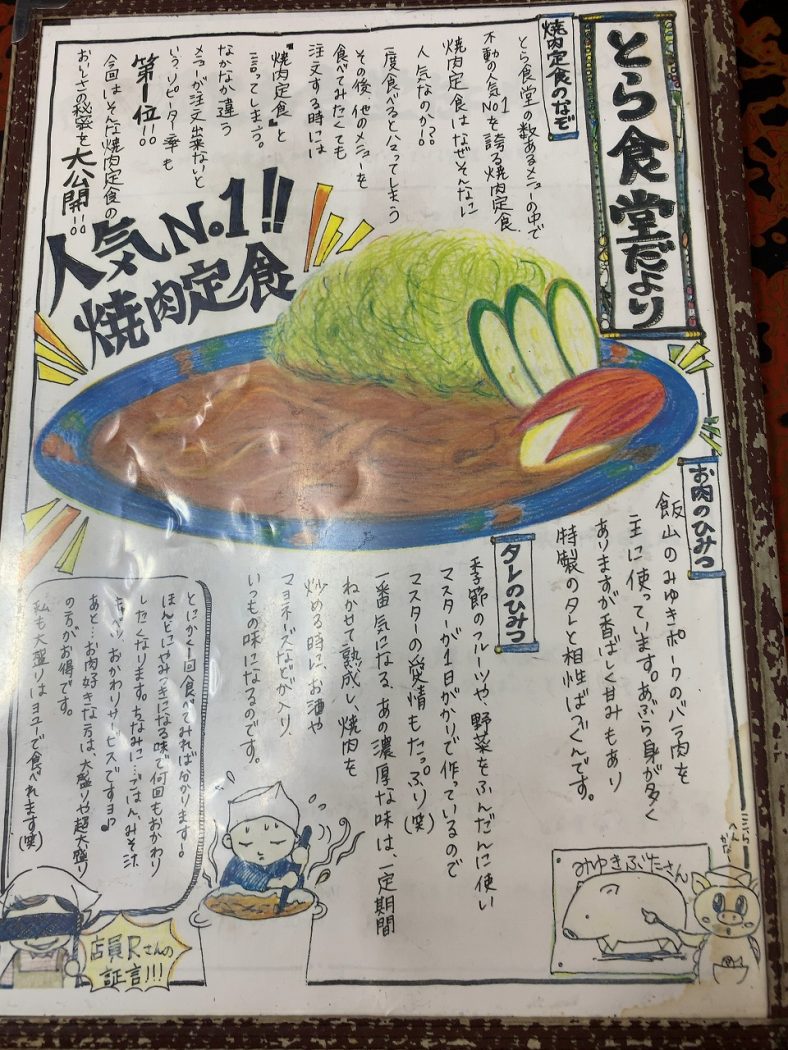 とら食堂だより
焼肉定食のなぞ
とら食堂の数あるメニューの中で
不動の人気No.1を誇る焼肉定食
焼肉定食はなぜそんなに
人気なのか??
一度食べるとハマってしまう
その後他のメニューを
食べてみたくても
注文する時には
『焼肉定食』と
言ってしまう。
なかなか違う
メニューが注文出来ないと
いう、リピーター率も
第1位!!
今回はそんな焼肉定食の
おいしさの秘密を大公開!!
人気No.1!!
焼肉定食
お肉のひみつ
飯山のみゆきポークのバラ肉を
主に使っています。あぶら身が多く
ありますが香ばしく甘みもあり
特製のタレと相性ばつぐんです。
タレのひみつ
季節のフルーツや、野菜をふんだんに使い
マスターが1日がかりで作っているので
マスターの愛情もたっぷり(笑)
一番気になる、あの濃厚な味は、一定期間
ねかせて熟成し、焼肉を
炒める時に、お酒や
マヨネーズなどが入り、
いつもの味になるのです。
とにかく1回食べてみれば分かります!。
ほんとにやみつきになる味で何回もおかわり
したくなります。ちなみに…ごはん、みそ汁、
キャベツ、おかわりサービスですヨ!?
あと…お肉好きな方は、大盛りや超大盛り
の方がお得です。
私も大盛りはヨユーで食べれます(笑)
店員Rさんの
証言!!!
みゆきぶたさん